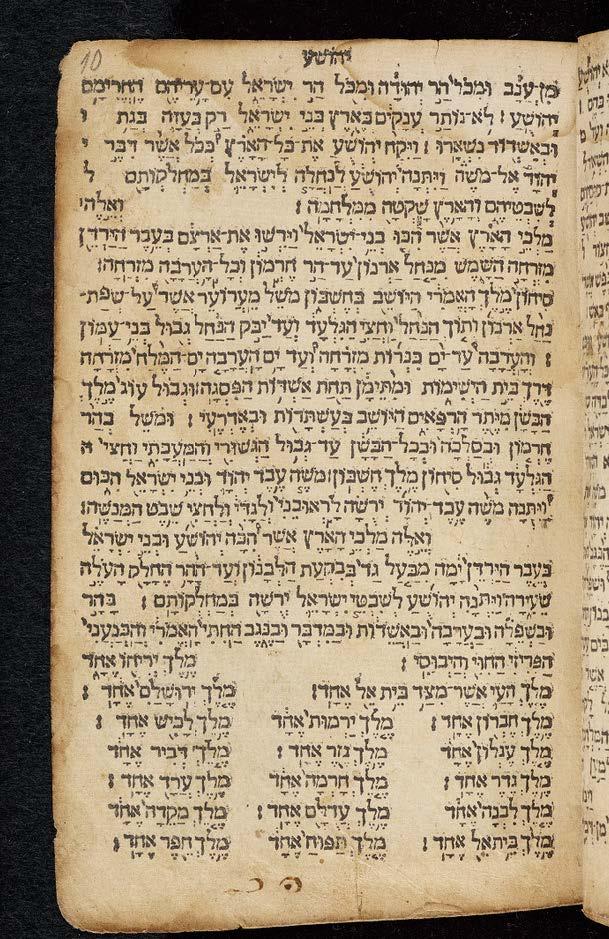 10
יהושע
מן ענב ומכל הר יהודה ומכל הר ישראל עם עריהם החרימם
יהושע : לא נותר ענקים בארץ בני ישראל רק בעזה בגת ו
ובאשדוד נשארו : ויקח יהושע את כל הארץ ככל אשר דבר י
אל משה ויתנה יהושע לנחלה לישראל במחלקותם ל
לשבטיהם והארץ שקטה ממלחמה :
מלכי הארץ אשר הכו בני ישראל וירשו את ארצם בעבר הירדן
מזרחה השמש מנחל ארנון עד הר חרמון וכל הערבה מזרחה :
סיחון מלך האמרי היושב בחשבון משל מערוער אשר על שפת
נחל ארנון ותוך הנחל וחצי הגלעד ועד יבק הנחל גבול בני עמון
: והערבה עד ים כנרות מזרחה ועד ים הערבה ים המלח מזרחה
דרך בית הישימות ומתימן תחת אשדות הפסגה : וגבול עוג מלך
הבשן מיתר הרפאים היושב בעשתרות ובאדרעי : ומשל בהר
חרמון ובסלכה ובכל הבשן עד גבול הגשורי והמעכתי וחצי ה
הגלעד גבול סיחון מלך חשבון : משה עבד יהוה ובני ישראל הכום
ויתנה משה עבד יהוה ירשה לראובני ולגדי ולחצי שבט המנשה :
ואלה מלכי הארץ אשר הכה יהושע ובני ישראל
בעבר הירדן ימה מבעל גד בבקעת הלבנון ועד ההר החלק העלה
שעירה ויתנה יהושע לשבטי ישראל ירשה כמחלקותם : בהר
ובשפלה ובערבה ובאשדות ובמדבר ובנגב החתי האמרי והכנעני
הפריזי החוי והיבוסי : מלך יריחו אחד
מלך העי אשר מצד בית אל אחד : מלך ירושלם אחד :
מלך חברון אחד : מלך ירמות אחד מלך לכיש אחד :
מלך עגלון אחד מלך גזר אחד : מלך דביר אחד
מלך גדר אחד : מלך חרמה אחד מלך ערד אחד :
מלך לבנה אחד מלך עדלם אחד : מלך מקדה אחד
מלך בית אל אחד : מלך תפוח אחד מלך חפר אחד :